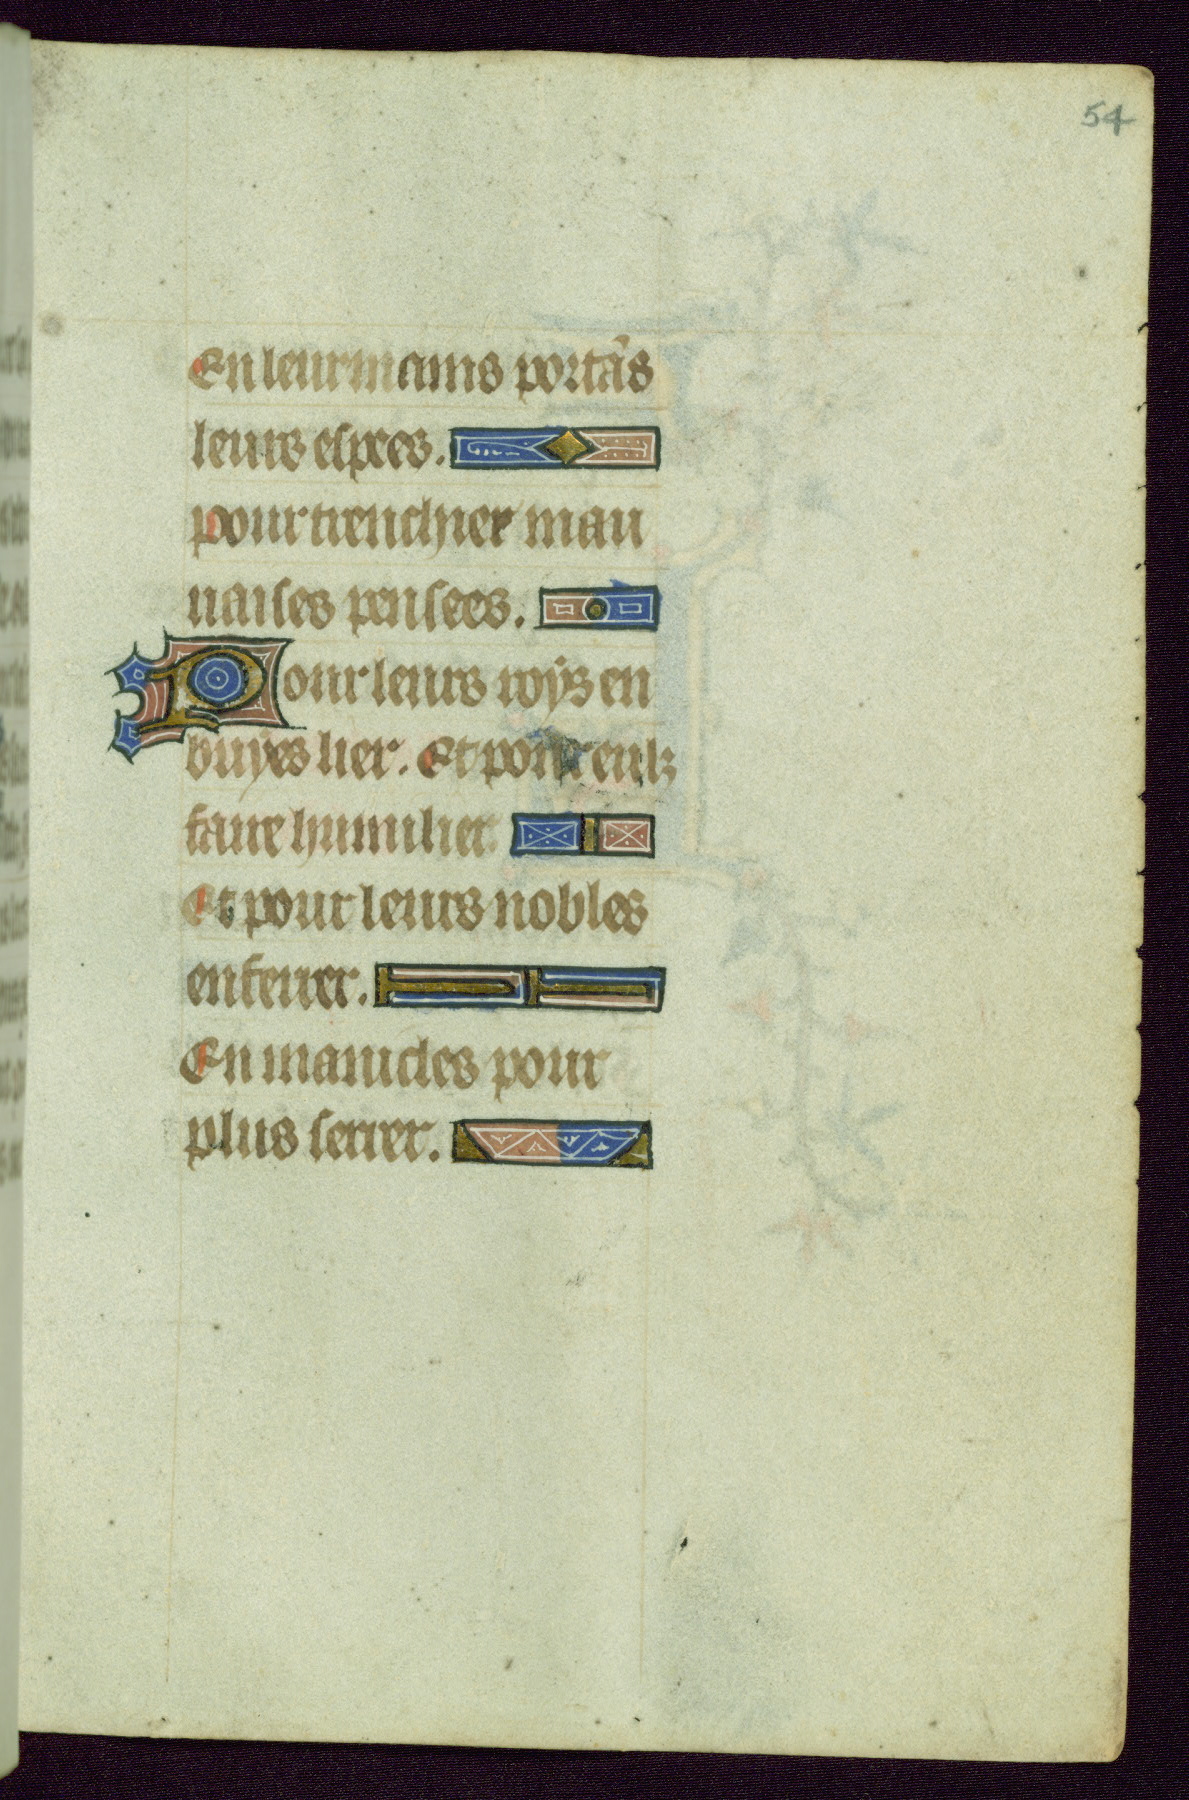 54
En leur mains porta̅s
leurs espees.
pour trenchier mau
uaises pensees.
Pour leurs roÿs en
buÿes lier. Et pour eulz
faire humilier
Et pour leurs nobles
enferrer.
En manicles pour
plus serrer.